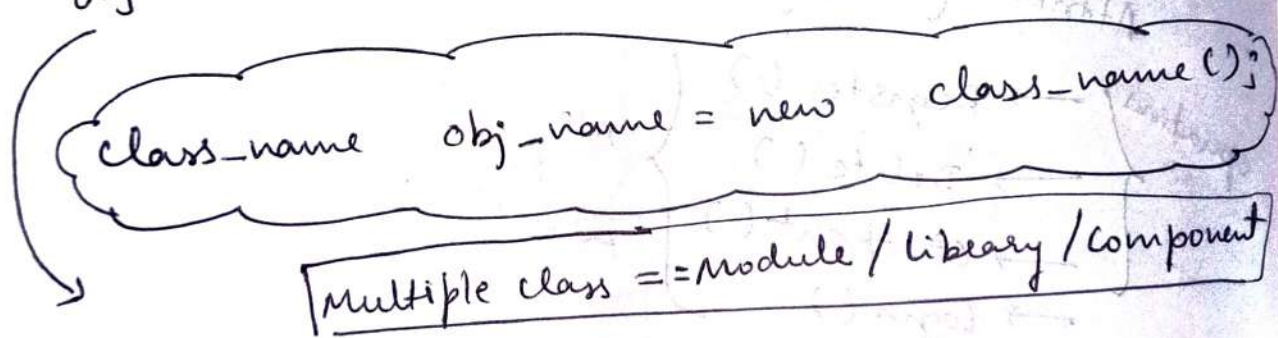 class_name obj_name = new class_name();
Multiple class == Module / Library / Component